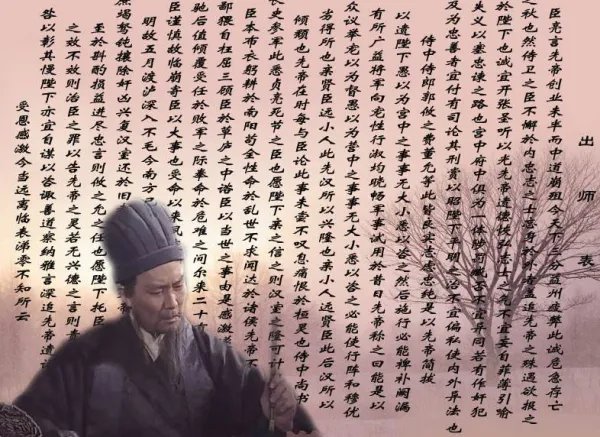 出师表
臣亮言先帝创业未半而中道崩殂今天下三分益州疲弊此诚危急存亡
之秋也然侍卫之臣不懈於内忠志之士忘身於外者盖追先帝之殊遇欲报之
於陛下也诚宜开张圣听以光先帝遗德恢弘志士之气不宜妄自菲薄引喻
失义以塞忠谏之路也宫中府中俱为一体陟罚臧否不宜异同若有作奸犯
及为忠善者宜付有司论其刑赏以昭陛下平明之治不宜偏私使内外异法也
侍中侍郎郭攸之费董允等此皆良实志虑忠纯是以先帝简拔
以遗陛下愚以为宫中之事事无大小悉以咨之然后施行必能裨补阙漏
有所广益将军向宠性行淑均晓畅军事试用於昔日先帝称之曰能是以
众议举宠以为督愚以为营中之事事无大小悉以咨之必能使行阵和穆优
劣得所也亲贤臣远小人此先汉所以兴隆也亲小人远贤臣此后汉所以
倾颓也先帝在时每与臣论此事未尝不叹息痛恨於桓灵也侍中尚书
长史参军此悉贞亮死节之臣也愿陛下亲之信之则汉室之隆可计
臣本布衣躬耕於南阳苟全性命於乱世不求闻达於诸侯先帝不
鄙猥自枉屈三顾臣於草庐之中谘臣以当世之事由是感激
驰后值倾覆受任於败军之际奉命於危难之间尔来二十
臣谨慎故临崩寄臣以大事也受命以来夙
明故五月渡泸深入不毛今南方已
庶竭驽钝攘除奸凶兴复汉室还於旧
至於斟酌损益进尽忠言则攸之允之任也愿陛下托臣
之效不效则治臣之罪以告先帝之灵若无兴德之言则责
咎以彰其慢陛下亦宜自谋以咨诹善道察纳雅言深追先帝遗
受恩感激今当远离临表涕零不知所云